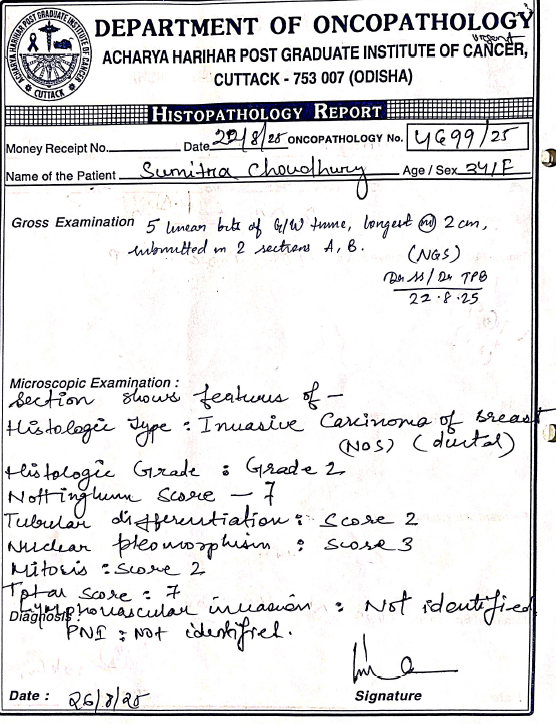 DEPARTMENT OF ONCOPATHOLOGY
Urgent
ACHARYA HARIHAR POST GRADUATE INSTITUTE OF CANCER,
CUTTACK - 753 007 (ODISHA)
ACHARYA HARIHAR POST GRADUATE INSTITUTE OF CANCER
CUTTACK
HISTOPATHOLOGY REPORT
Money Receipt No. Date 22/8/25 ONCOPATHOLOGY No. 4699/25
Name of the Patient Sumitra Choudhury Age / Sex 34/F
Gross Examination 5 linear bits of G/W tissue, longest 2 cm,
submitted in 2 sections A, B.
(NGS)
Dr SS/Dr TPB
22.8.25
Microscopic Examination :
Section shows features of -
Histologic Type : Invasive Carcinoma of Breast
(NOS) (ductal)
Histologic Grade : Grade 2
Nottingham Score - 7
Tubular differentiation : Score 2
Nuclear pleomorphism : Score 3
Mitosis : Score 2
Total Score : 7
Lymphovascular invasion : Not identified
Diagnosis :
PNI : Not identified.
Date : 26/8/25
Signature